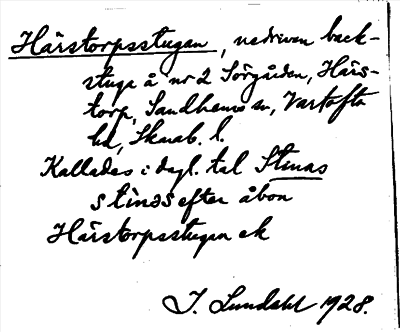 Härstorpsstugan, nedriven back-
stuga å nr 2 Sörgården, Härs-
torp, Sandhems sn, Vartofta
hd, Skarab. l.
Kallades i dagl. tal Stinas
stinas efter åbon
Härstorpsstugan ek
J. Lundahl 1928.